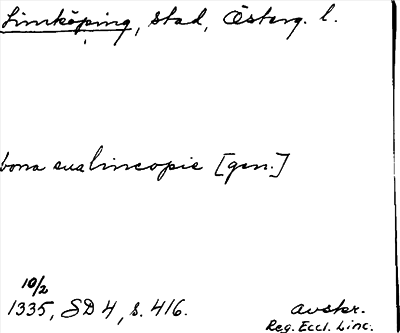 Linköping, stad, Österg. l.
bona sua lincopie [gen.]
10/2
1335, SD 4, s. 416.
avskr.
Reg. Eccl. Linc.